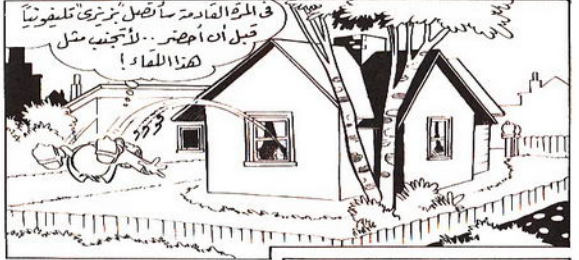 في المرة القادمة سأتصل "بزيزي" تليفونيًا
قبل أن أحضر .. لأتجنب مثل
هذا اللقاء !